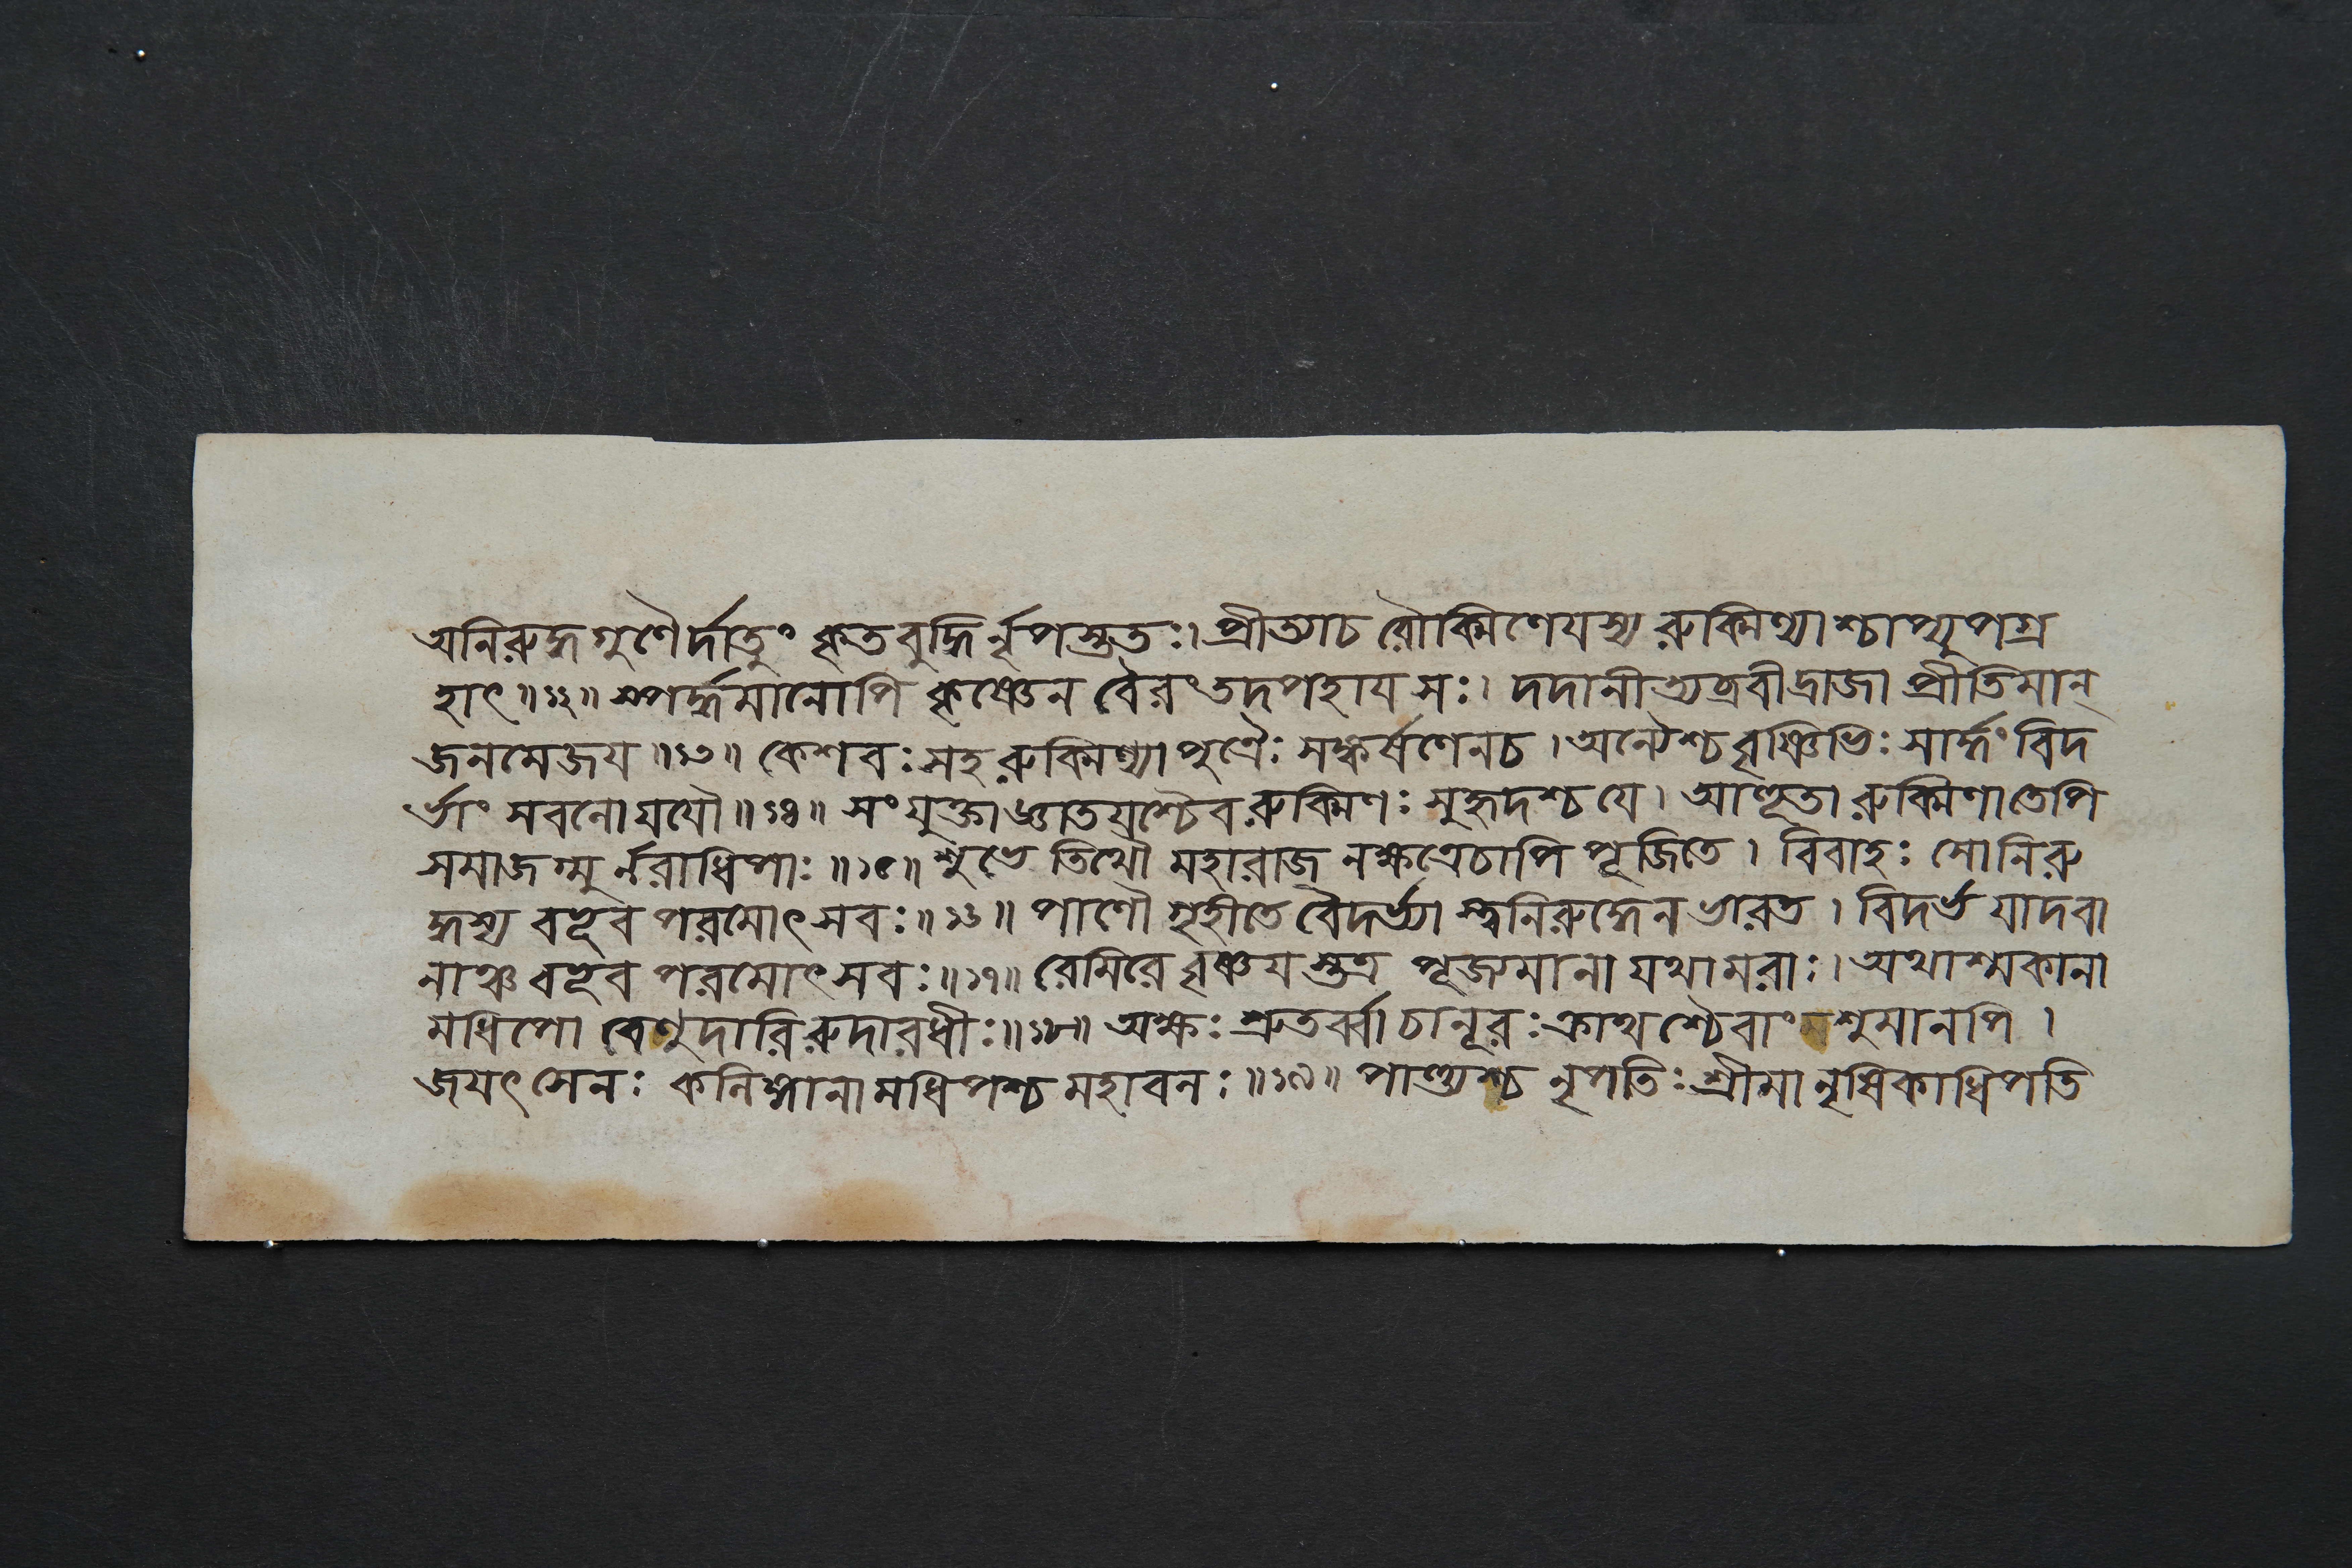 অনিরুদ্ধগুণৈর্দাতুং কৃতবুদ্ধির্নৃপস্তুতঃ। প্রীত্যাচ রৌক্মিণেযস্য রুক্মিণ্যাশ্চাপ্যুপগ্র
হাৎ॥১২॥ স্পর্দ্ধমানোপি কৃষ্ণেন বৈরং তদপহায সঃ। দদানীত্যব্রবীদ্রাজা প্রীতিমান্
জনমেজয॥১৩॥ কেশবঃ সহ রুক্মিণ্যা পুত্রৈঃ সঙ্কর্ষণেনচ। অন্যৈশ্চ বৃষ্ণিভিঃ সার্দ্ধং বিদ
র্ভাং সবলো যযৌ॥১৪॥ সংযুক্তা জ্ঞাতযশ্চৈব রুক্মিণঃ সুহৃদশ্চ যে। আহূতা রুক্মিণা তেপি
সমাজগ্মুর্নরাধিপাঃ॥১৫॥ শুভে তিথৌ মহারাজ নক্ষত্রেচাপি পূজিতে। বিবাহঃ সোনিরু
দ্ধস্য বভূব পরমোৎসবঃ॥১৬॥ পাণৌ গৃহীতে বৈদর্ভ্যাস্ত্বনিরুদ্ধেন ভারত। বিদর্ভযাদবা
নাঞ্চ বভূব পরমোৎসবঃ॥১৭॥ রেমিরে বৃষ্ণযস্তত্র পূজ্যমানা যথামরাঃ। অথাশ্মকানা
মধিপো বেণুদারিরুদারধীঃ॥১৮॥ অক্ষঃ শ্রুতর্ব্বা চানূরঃ ক্রাথশ্চৈবাংশুমানপি।
জযৎসেনঃ কলিঙ্গানামধিপশ্চ মহাবলঃ॥১৯॥ পাণ্ড্যশ্চ নৃপতিঃ শ্রীমানৃষিকাধিপতি